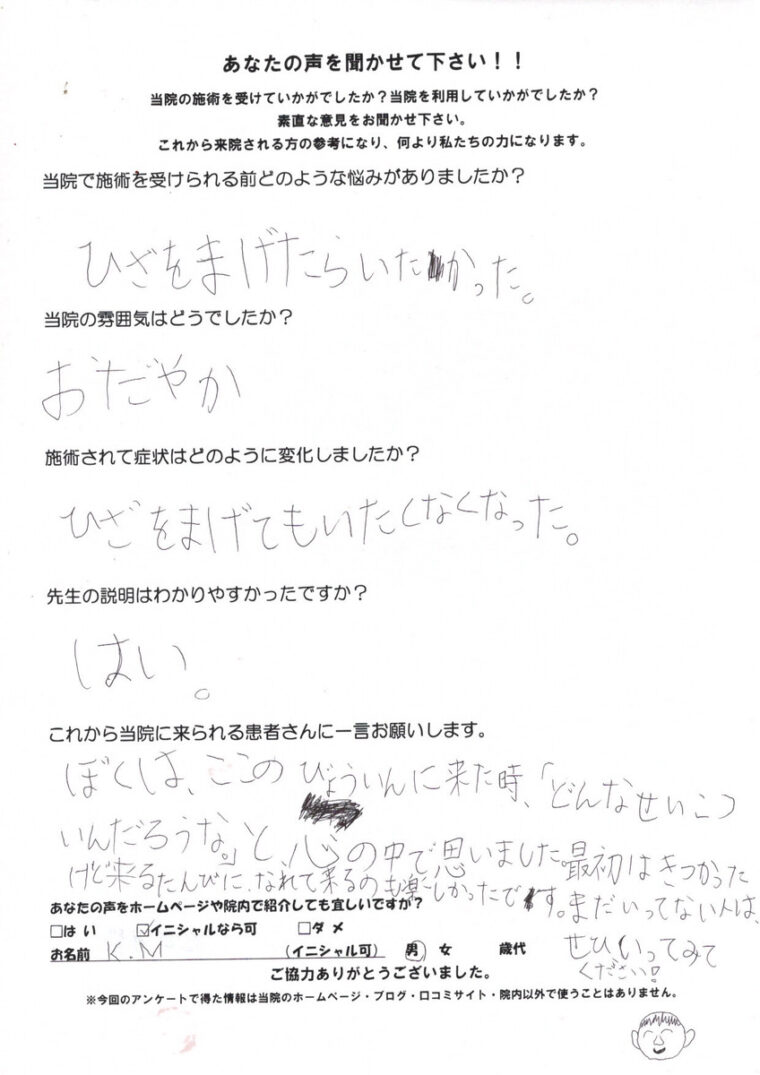 あなたの声を聞かせて下さい！！
当院の施術を受けていかがでしたか？当院を利用していかがでしたか？
素直な意見をお聞かせ下さい。
これから来院される方の参考になり、何より私たちの力になります。
当院で施術を受けられる前どのような悩みがありましたか？
ひざをまげたらいたかった。
当院の雰囲気はどうでしたか？
おだやか
施術されて症状はどのように変化しましたか？
ひざをまげてもいたくなくなった。
先生の説明はわかりやすかったですか？
はい。
これから当院に来られる患者さんに一言お願いします。
ぼくは、ここのびょういんに来た時、「どんなせいこつ
いんだろうな。」と、心の中で思いました。最初はきつかった
けど来るたんびに、なれて来るのも楽しかったです。まだいってない人は、
ぜひいってみて
ください!
あなたの声をホームページや院内で紹介しても宜しいですが？
□はい ☑イニシャルなら可 □ダメ
お名前 K.M （イニシャル可） 男 女 歳代
ご協力ありがとうございました。
※今回のアンケートで得た情報は当院のホームページ・ブログ・口コミサイト・院内以外で使うことはありません。